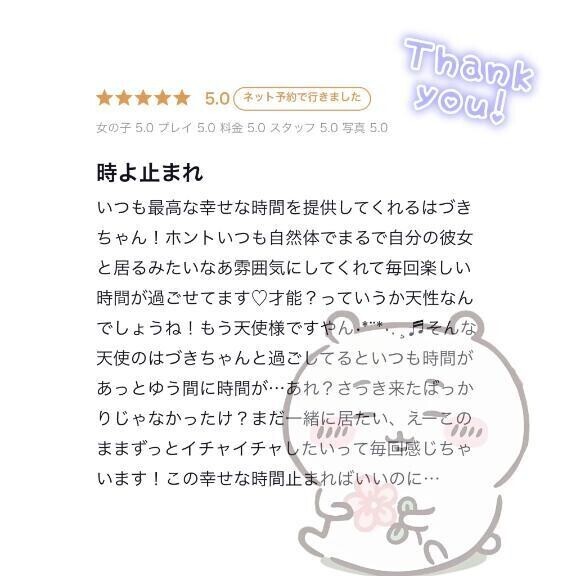 Thank
you!
★★★★★ 5.0 ネット予約で行きました
女の子 5.0 プレイ 5.0 料金 5.0 スタッフ 5.0 写真 5.0
時よ止まれ
いつも最高な幸せな時間を提供してくれるはづき
ちゃん！ホントいつも自然体でまるで自分の彼女
と居るみたいなあ雰囲気にしてくれて毎回楽しい
時間が過ごせてます♡才能？っていうか天性なん
でしょうね！もう天使様ですやん⋆*¨*･.¸¸♬そんな
天使のはづきちゃんと過ごしてるといつも時間が
あっとゆう間に時間が…あれ？さっき来たばっか
りじゃなかったけ？まだ一緒に居たい、えーこの
ままずっとイチャイチャしたいって毎回感じちゃ
います！この幸せな時間止まればいいのに…